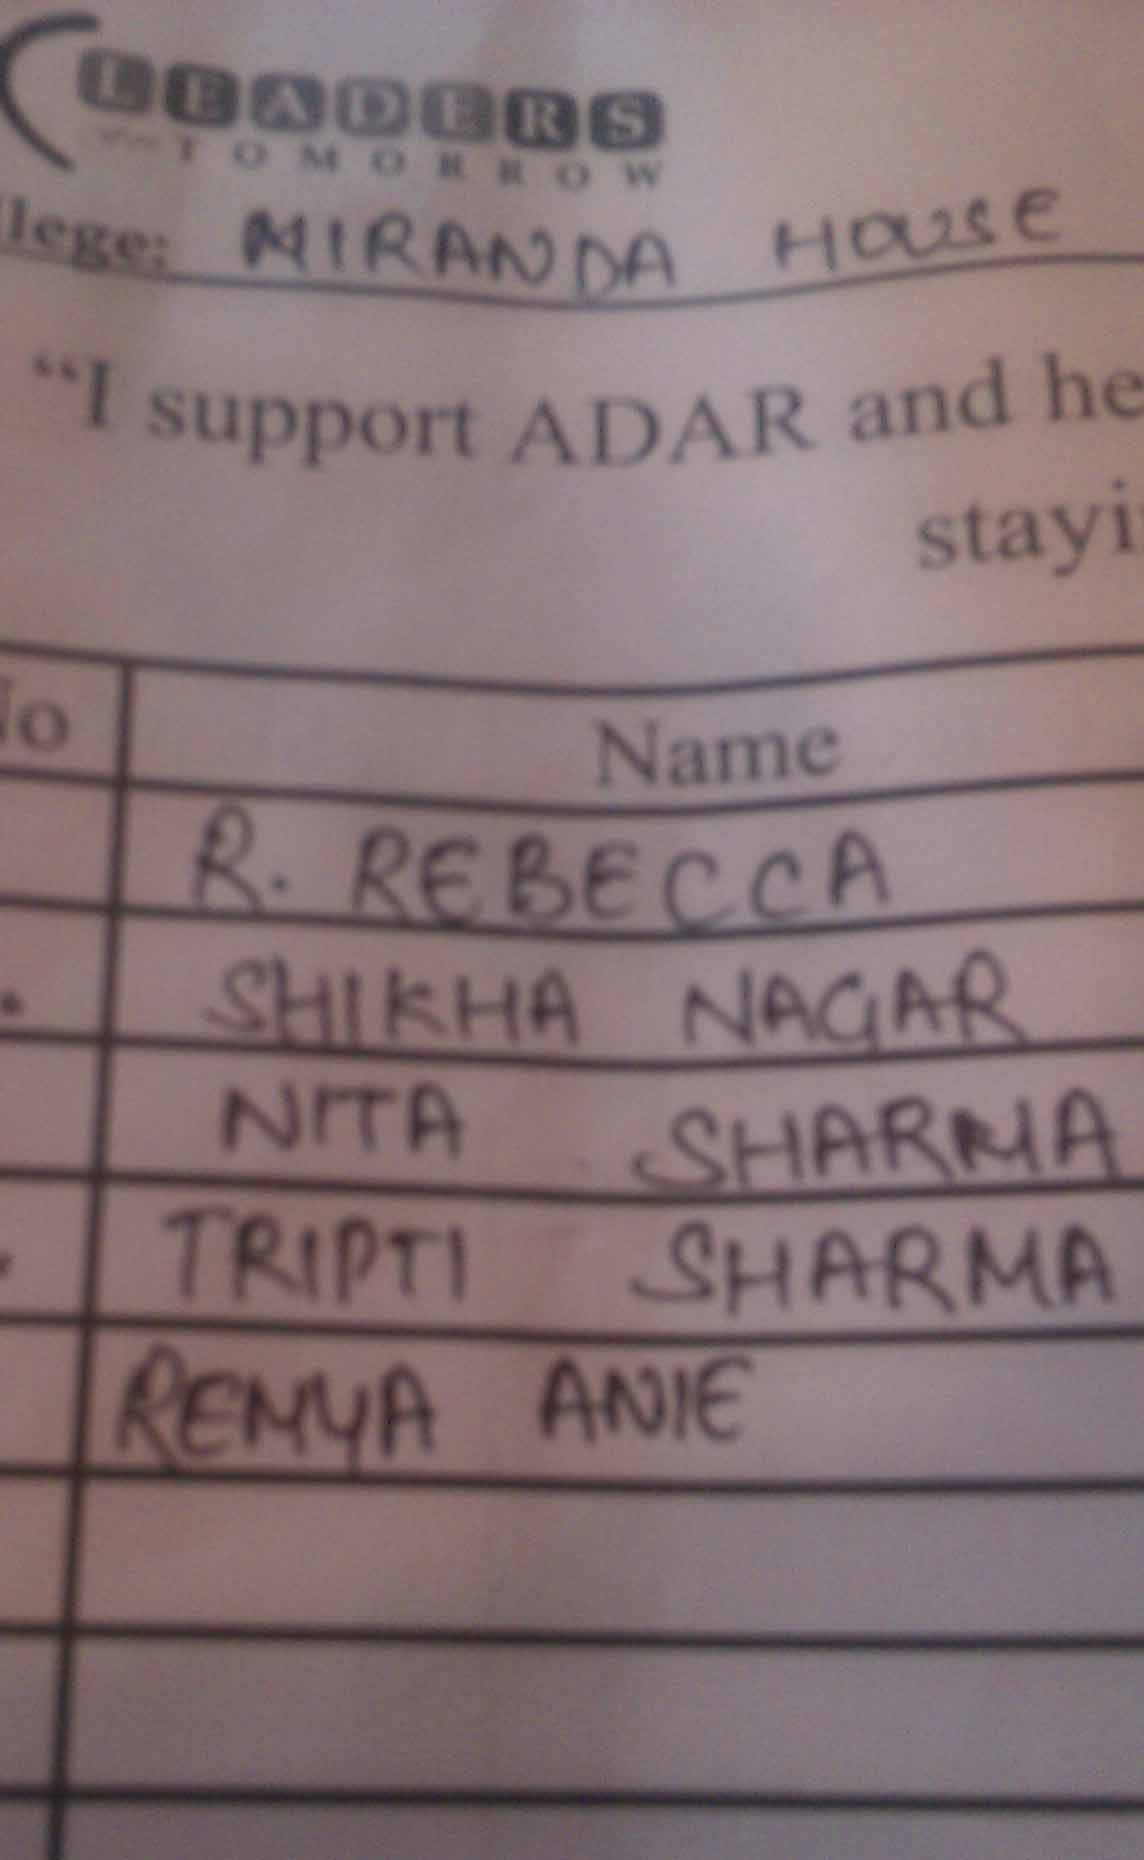 LEADERS
TOMORROW
llege: MIRANDA HOUSE
“I support ADAR and he
stayi
No Name
R. REBECCA
SHIKHA NAGAR
NITA SHARMA
TRIPTI SHARMA
REMYA ANIE